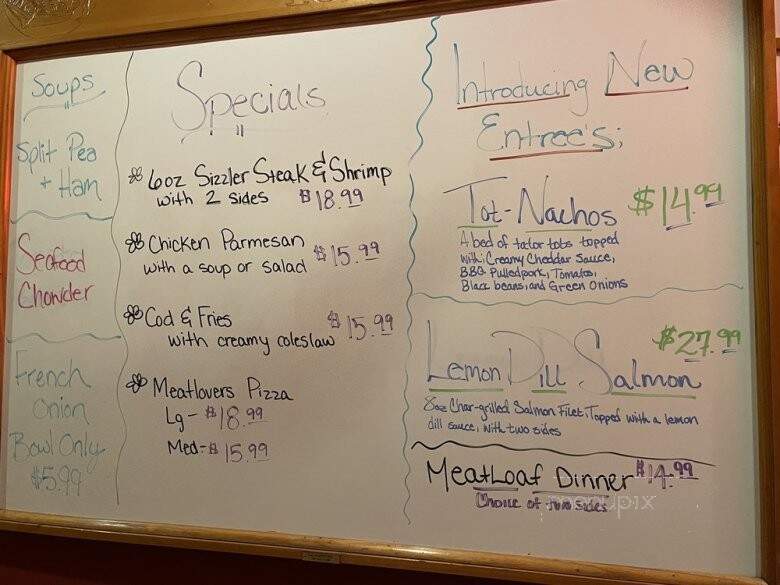 Soups
Split Pea
+ Ham
Seafood
Chowder
French
Onion
Bowl Only
$5.99
Specials
6oz Sizzler Steak & Shrimp
with 2 sides $18.99
Chicken Parmesan $15.99
with a soup or salad
Cod & Fries $15.99
with creamy coleslaw
Meatlovers Pizza
Lg - $18.99
Med - $15.99
Introducing New
Entree's;
Tot-Nachos $14.99
A bed of tator tots topped
with; Creamy Cheddar Sauce,
BBQ Pulledpork, Tomatos,
Black beans, and Green Onions
$27.99
Lemon Dill Salmon
8oz Char-grilled Salmon Filet, Topped with a lemon
dill sauce, with two sides
MeatLoaf Dinner $14.99
Choice of two sides
menupix